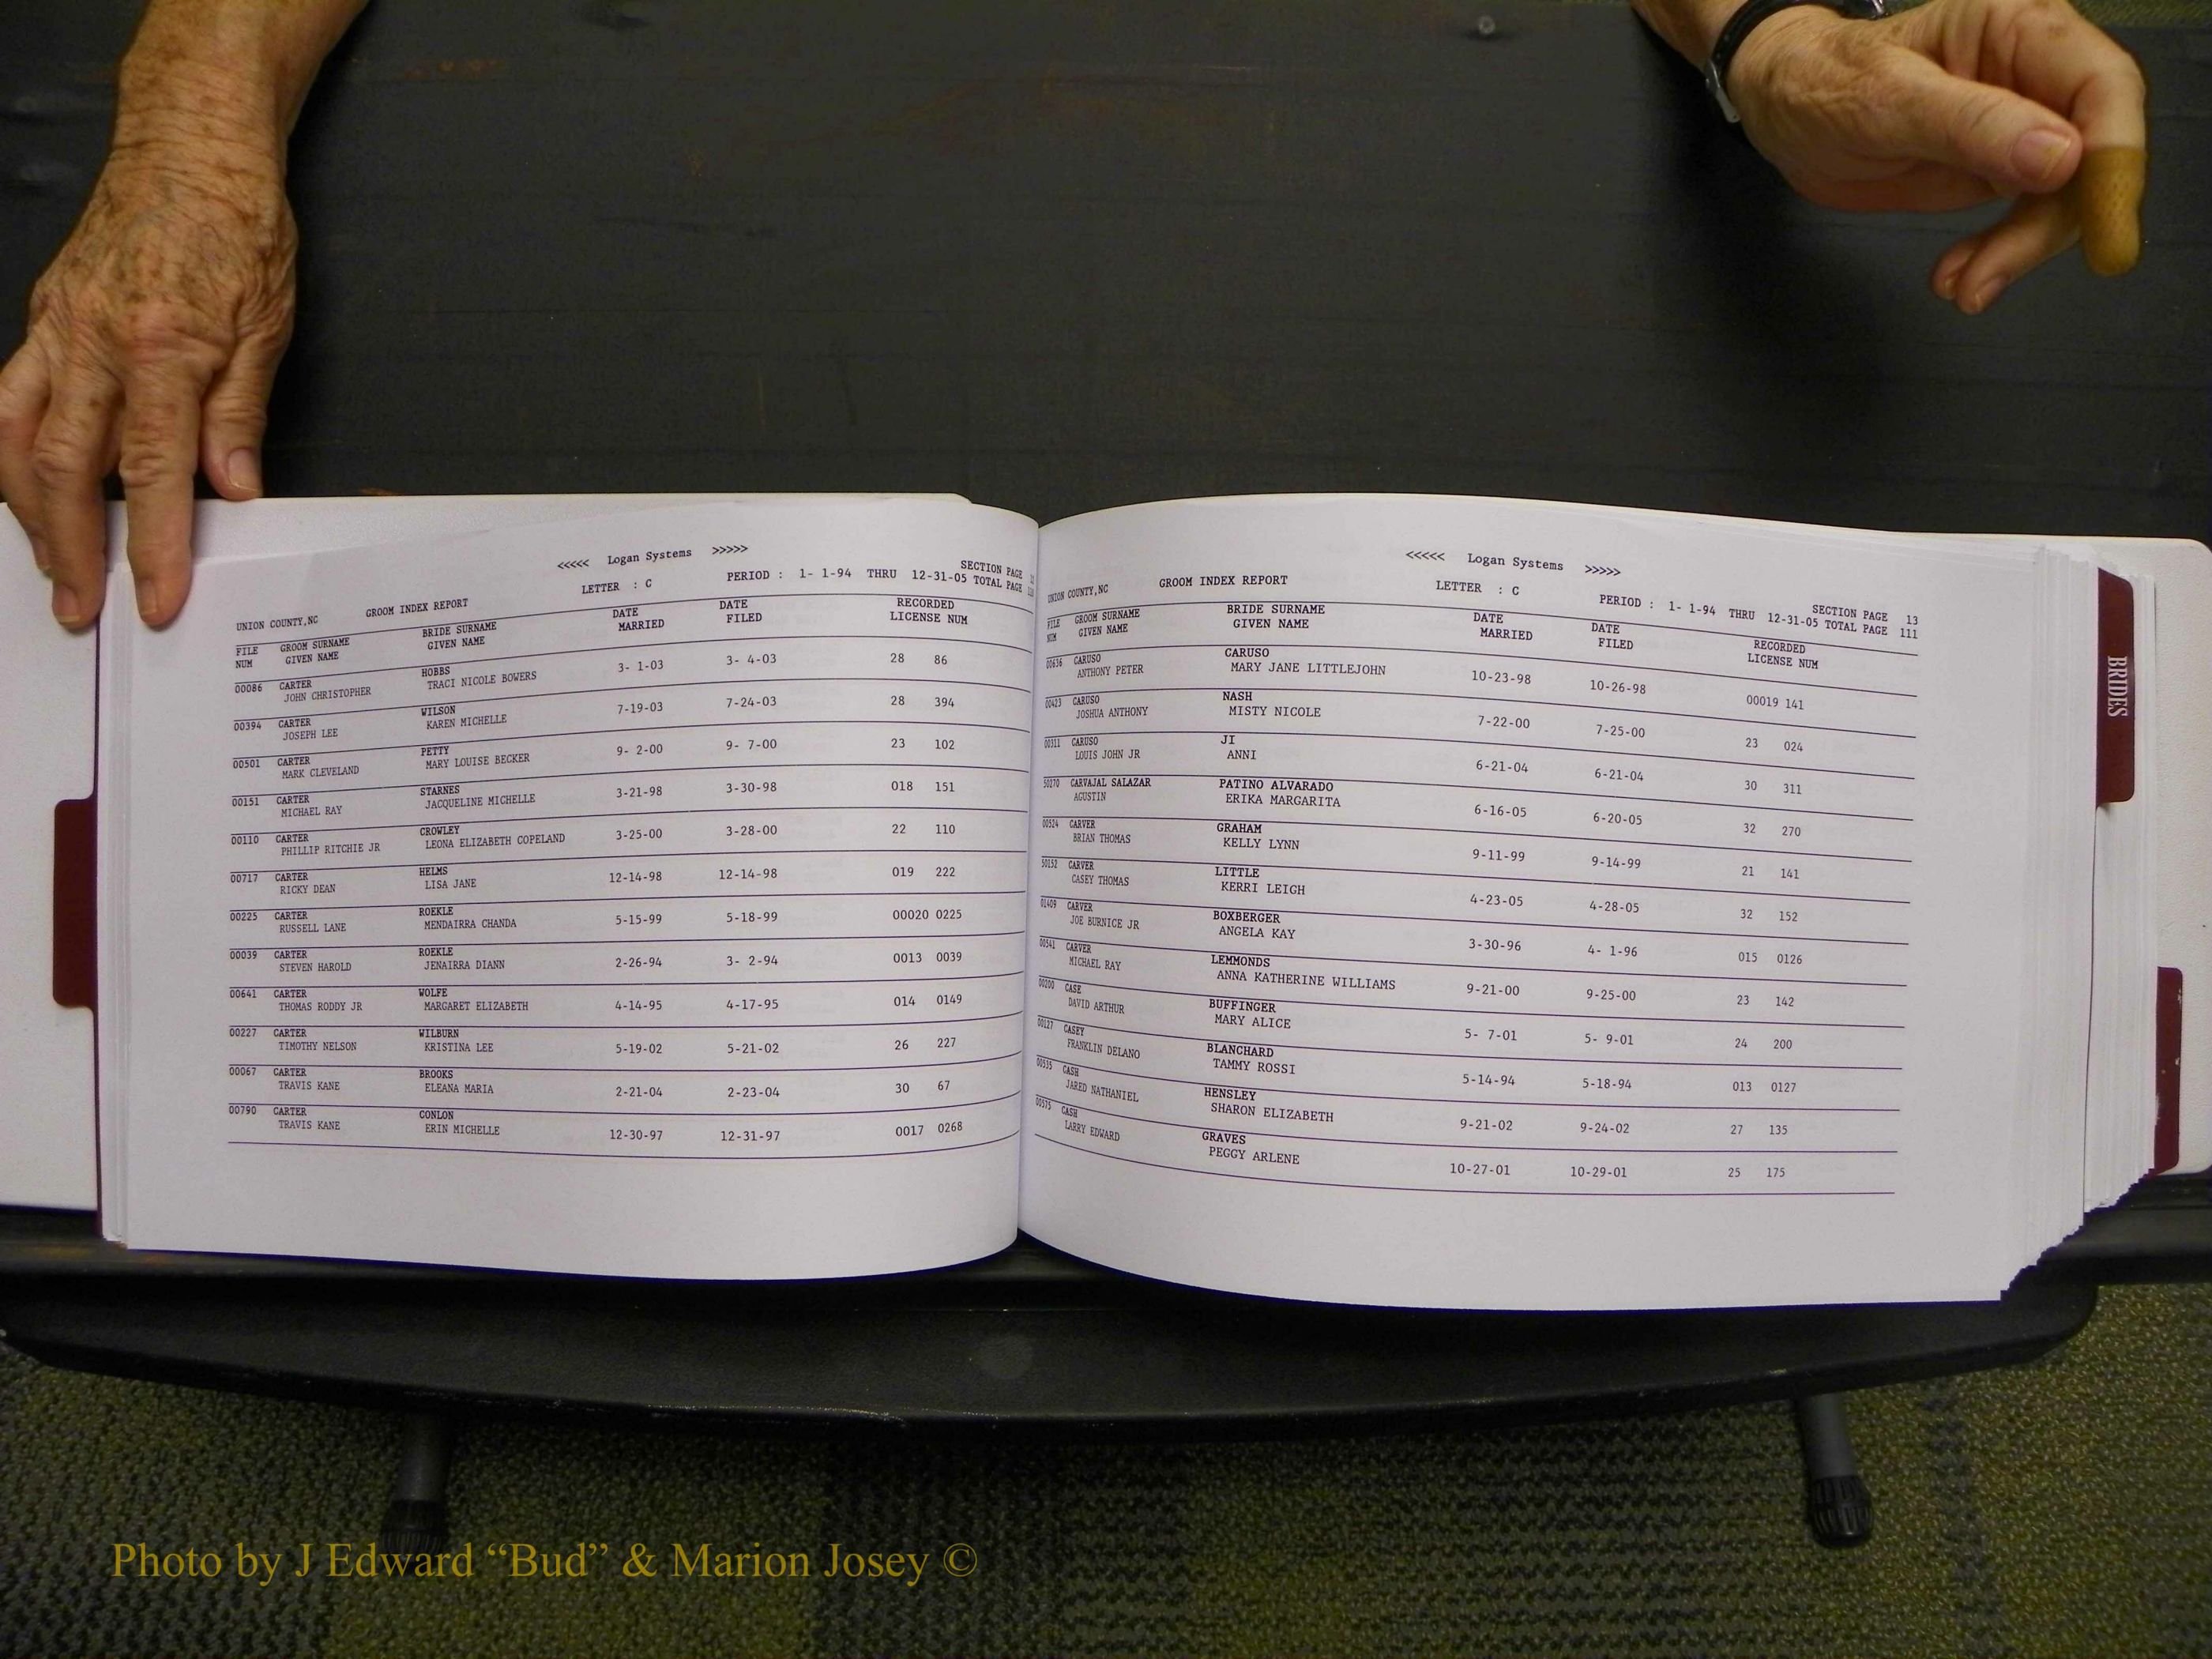 <<<<< Logan Systems >>>>>
UNION COUNTY,NC GROOM INDEX REPORT LETTER : C PERIOD : 1- 1-94 THRU 12-31-05 SECTION PAGE
TOTAL PAGE
FILE GROOM SURNAME BRIDE SURNAME DATE DATE RECORDED
NUM GIVEN NAME GIVEN NAME MARRIED FILED LICENSE NUM
00086 CARTER HOBBS 3- 1-03 3- 4-03 28 86
JOHN CHRISTOPHER TRACI NICOLE BOWERS
00394 CARTER WILSON 7-19-03 7-24-03 28 394
JOSEPH LEE KAREN MICHELLE
00501 CARTER PETTY 9- 2-00 9- 7-00 23 102
MARK CLEVELAND MARY LOUISE BECKER
00151 CARTER STARNES 3-21-98 3-30-98 018 151
MICHAEL RAY JACQUELINE MICHELLE
00110 CARTER CROWLEY 3-25-00 3-28-00 22 110
PHILLIP RITCHIE JR LEONA ELIZABETH COPELAND
00717 CARTER HELMS 12-14-98 12-14-98 019 222
RICKY DEAN LISA JANE
00225 CARTER ROEKLE 5-15-99 5-18-99 00020 0225
RUSSELL LANE MENDAIRRA CHANDA
00039 CARTER ROEKLE 2-26-94 3- 2-94 0013 0039
STEVEN HAROLD JENAIRRA DIANN
00641 CARTER WOLFE 4-14-95 4-17-95 014 0149
THOMAS RODDY JR MARGARET ELIZABETH
00227 CARTER WILBURN 5-19-02 5-21-02 26 227
TIMOTHY NELSON KRISTINA LEE
00067 CARTER BROOKS 2-21-04 2-23-04 30 67
TRAVIS KANE ELEANA MARIA
00790 CARTER CONLON 12-30-97 12-31-97 0017 0268
TRAVIS KANE ERIN MICHELLE
<<<<< Logan Systems >>>>>
UNION COUNTY,NC GROOM INDEX REPORT LETTER : C PERIOD : 1- 1-94 THRU 12-31-05 SECTION PAGE 13
TOTAL PAGE 111
FILE GROOM SURNAME BRIDE SURNAME DATE DATE RECORDED
NUM GIVEN NAME GIVEN NAME MARRIED FILED LICENSE NUM
00636 CARUSO CARUSO 10-23-98 10-26-98 00019 141
ANTHONY PETER MARY JANE LITTLEJOHN
00423 CARUSO NASH 7-22-00 7-25-00 23 024
JOSHUA ANTHONY MISTY NICOLE
00311 CARUSO JI 6-21-04 6-21-04 30 311
LOUIS JOHN JR ANNI
50270 CARVAJAL SALAZAR PATINO ALVARADO 6-16-05 6-20-05 32 270
AGUSTIN ERIKA MARGARITA
00524 CARVER GRAHAM 9-11-99 9-14-99 21 141
BRIAN THOMAS KELLY LYNN
50152 CARVER LITTLE 4-23-05 4-28-05 32 152
CASEY THOMAS KERRI LEIGH
01409 CARVER BOXBERGER 3-30-96 4- 1-96 015 0126
JOE BURNICE JR ANGELA KAY
00541 CARVER LEMMONDS 9-21-00 9-25-00 23 142
MICHAEL RAY ANNA KATHERINE WILLIAMS
00200 CASE BUFFINGER 5- 7-01 5- 9-01 24 200
DAVID ARTHUR MARY ALICE
00127 CASEY BLANCHARD 5-14-94 5-18-94 013 0127
FRANKLIN DELANO TAMMY ROSSI
00535 CASH HENSLEY 9-21-02 9-24-02 27 135
JARED NATHANIEL SHARON ELIZABETH
00575 CASH GRAVES 10-27-01 10-29-01 25 175
LARRY EDWARD PEGGY ARLENE
BRIDES
Photo by J Edward “Bud” & Marion Josey ©